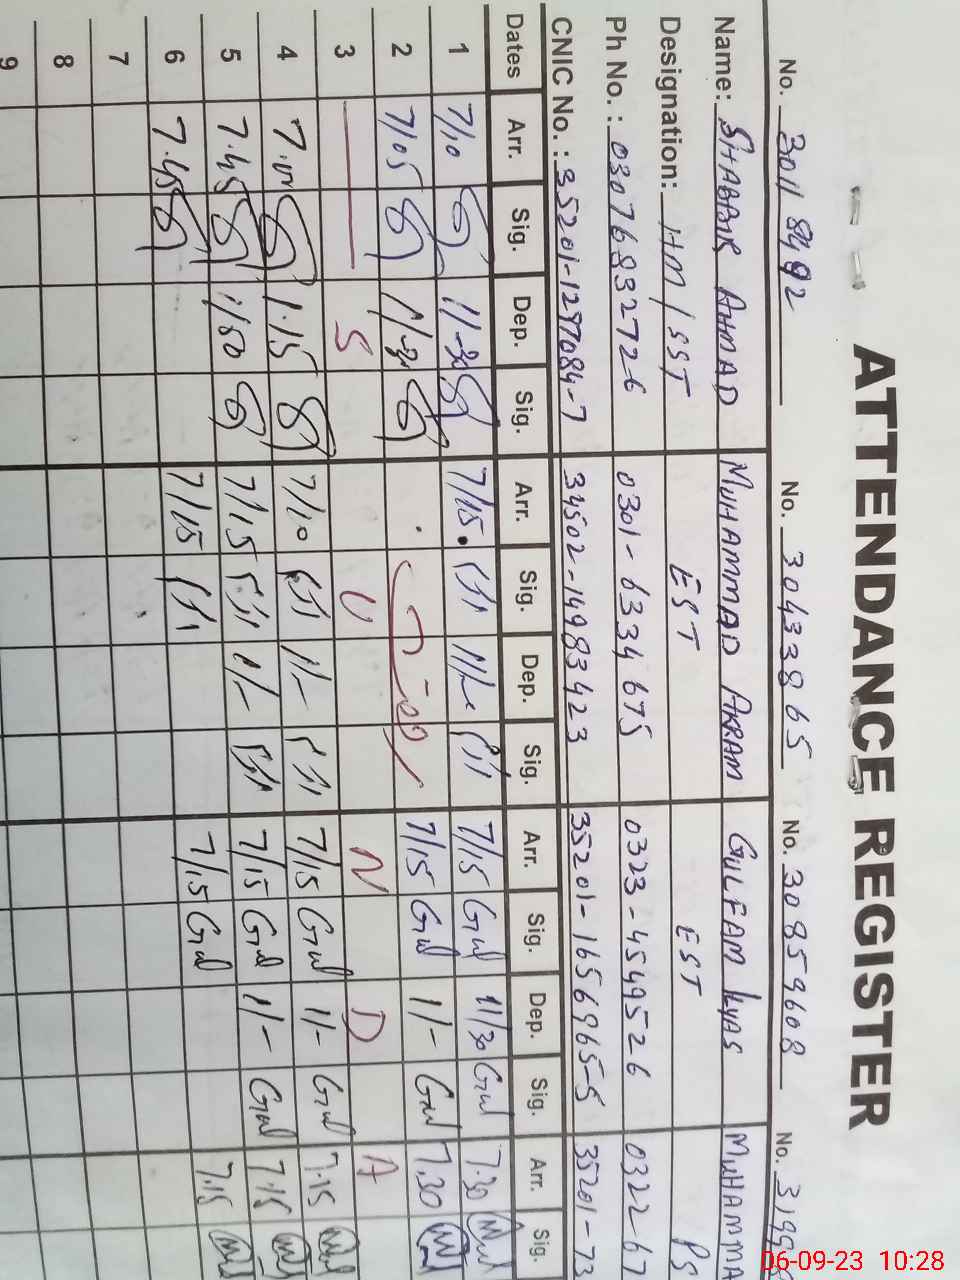 ATTENDANCE REGISTER
No. 30118492 No. 30433865 No. 30859608 No.
Name: SHABBIR AHMAD MUHAMMAD AKRAM GULFAM ILYAS MUHAMMA
Designation: HM / SST EST EST PS
Ph No. : 03076832726 0301-6334675 0323-4549526 0322-67
CNIC No. : 35201-1297084-7 34502-1498342 3 35201-1656965-5 35201-73
Dates Arr. Sig. Dep. Sig. Arr. Sig. Dep. Sig. Arr. Sig. Dep. Sig. Arr. Sig.
1 7/10 11-30 7/15. 7/15 Gul 11/30 Gul 7.30
2 7/05 11-30 7/15 Gul 11/- Gul 7.30
3 S U N D A
4 1.15 7/10 11/- 7/15 Gul 11/- Gul 7.15
5 7.45 1/50 7/15 11/- 7/15 Gul 11/- Gul 7.15
6 7.45 7/15 7/15 Gul 7.15
7
8
9
06-09-23 10:28